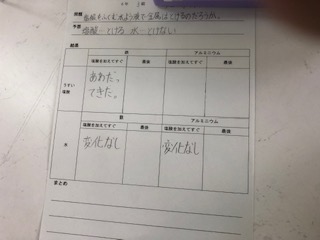 問題 塩酸
予想 塩酸…とける 水…とけない
結果
鉄 アルミニウム
塩酸を加えてすぐ 最後 塩酸を加えてすぐ 最後
うすい
塩酸
あわだっ
てきた。
鉄 アルミニウム
塩酸を加えてすぐ 最後 塩酸を加えてすぐ 最後
水 変化なし 変化なし
まとめ